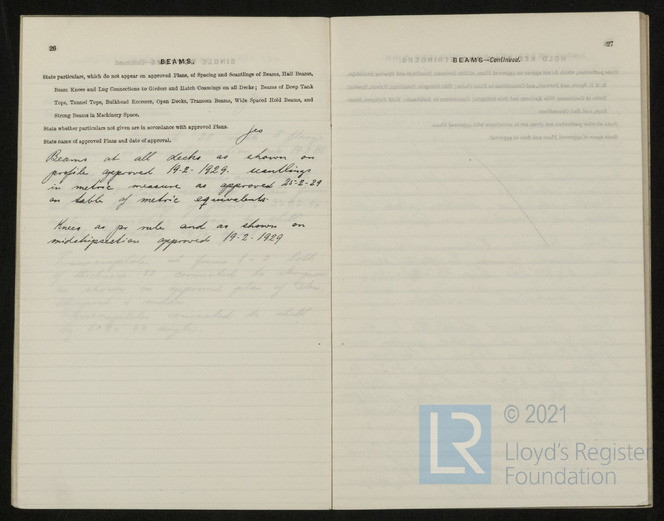 26
BEAMS.
State particulars, which do not appear on approved Plans, of Spacing and Scantlings of Beams, Half Beams,
Beam Knees and Lug Connections to Girders and Hatch Coamings on all Decks; Beams of Deep Tank
Tops, Tunnel Tops, Bulkhead Recesses, Open Decks, Transom Beams, Wide Spaced Hold Beams, and
Strong Beams in Machinery Space.
State whether particulars not given are in accordance with approved Plans. Yes
State name of approved Plans and date of approval.
Beams at all decks as shown on
profile approved 19-2-1929. scantlings
in metric measure as approved 25-2-29
on table of metric equivalents.
Knees as pr rule and as shown on
midshipsection approved 19-2-1929
27
BEAMS—Continued.
LR
© 2021
Lloyd's Register
Foundation